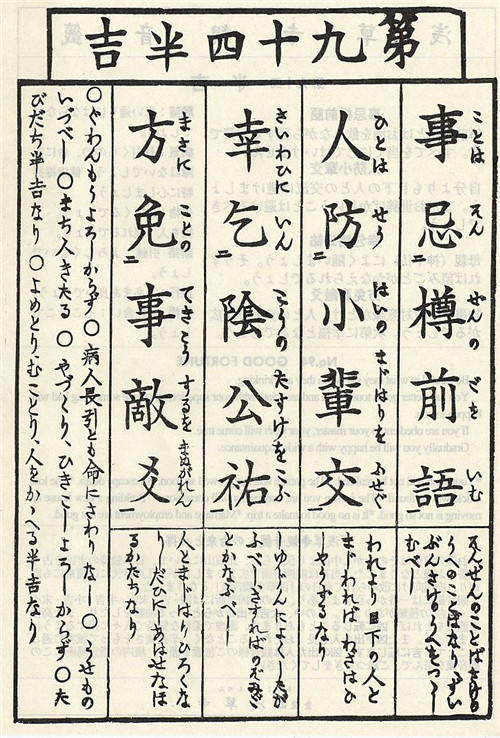 第九十四半吉
ことは えん ぜんの ごを いむ
事忌樽前語
われより目下の人と
まじわればわざはひ
しやうずるなり
ひとは せう はいの まじはりを ふせぐ
人防小輩交
さわひに いん こうの たすけをこふ
幸乞陰公祐
まさに ことの てきこう するを まぬがれん
方免事敵爻
人とまじはりひろくな
りしだひにしあはせなほ
るかたちなり
〇ぐわんもうよろしからず〇病人長引とも命にさわりなし〇うせもの
いづべし〇まち人きたる〇やづくり、ひきこしよろしからず〇た
びだち半吉なり〇よめとり、むことり、人をかゝへる半吉なり